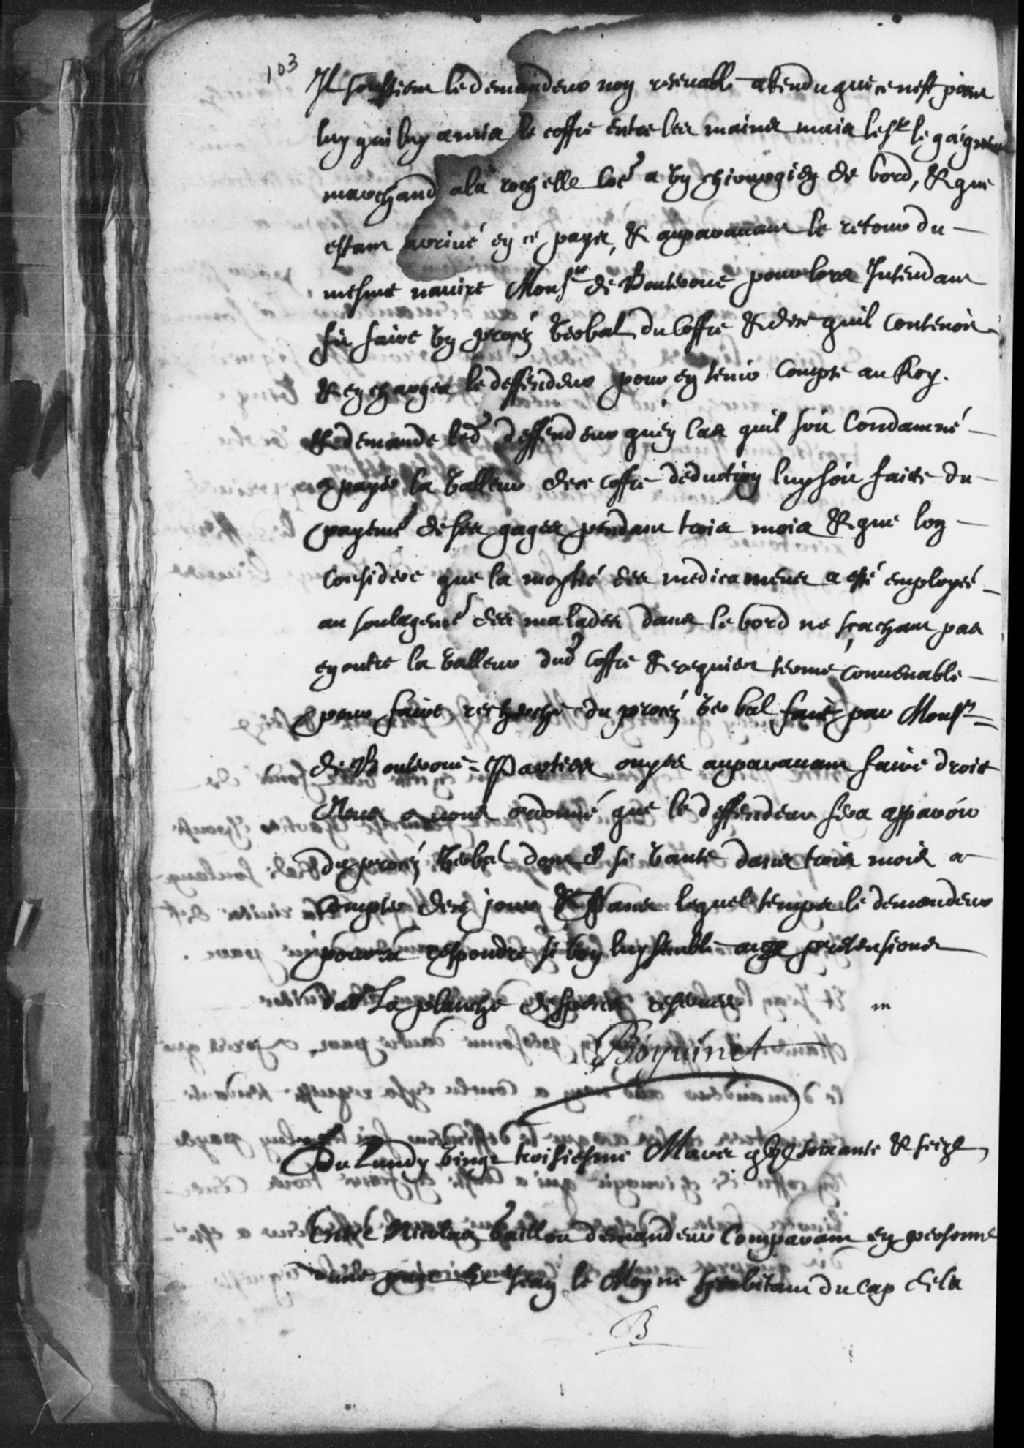 103
Il soustient le demandeur non recevable attendu que ce n'est point
luy qui luy a mis le coffre entre les mains mais le Sr le gaigneur
marchand a la rochelle lors a un chirurgien de bord, & que
estant arrivé en ce pays, & auparavant le retour du
mesme navire Monsr de Boutroue pour lors Intendant
fit faire un procez verbal du Coffre & de ce quil contenoit
& en charger le deffendeur pour en tenir Compte au Roy.
& demande led deffendeur quen cas quil soit Condamné
a payer la valleur de ce coffre deduction luy soit faite du
payemt de ses gages pendant trois mois & que lon
Considere que la moytié des medicamens a esté employé
au soulagemt des malades dans le bord ne scachant pas
en outre la valleur dud Coffre & requier terme convenable
pour faire recherche du procez verbal fait par Monsr
de Boutroue Parties ouyes auparavant faire droit
Nous avons ordonné que le deffendeur fera apparoir
du procez verbal dont il se vante dans trois mois a
Compter de ce jour & dans lequel temps le demandeur
pourra respondre si bon luy semble aux pretensions
dud La planche despens reservez
Boyvinet
Du Lundy vingt troisiesme Mars gbjc soixante & seize
Entre Nicolas vaillon demandeur Comparant en personne
dune part & Jean le Moyne habitant du Cap de la
B